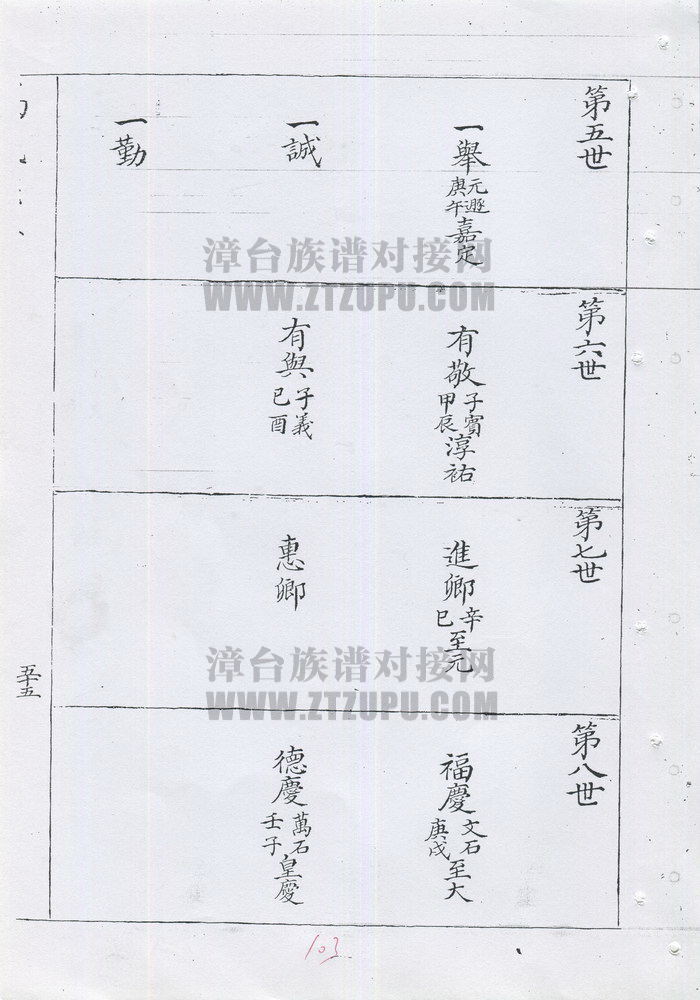 第五世
一舉 元遜 庚午 嘉定
一誠
一勤
第六世
有敬 子賓 甲辰 淳祐
有與 子義 已酉
第七世
進卿 辛巳 至元
惠卿
第八世
福慶 文石 庚戍 至大
德慶 萬石 壬子 皇慶
五十五
103
漳台族谱对接网
WWW.ZTZUPU.COM
漳台族谱对接网
WWW.ZTZUPU.COM